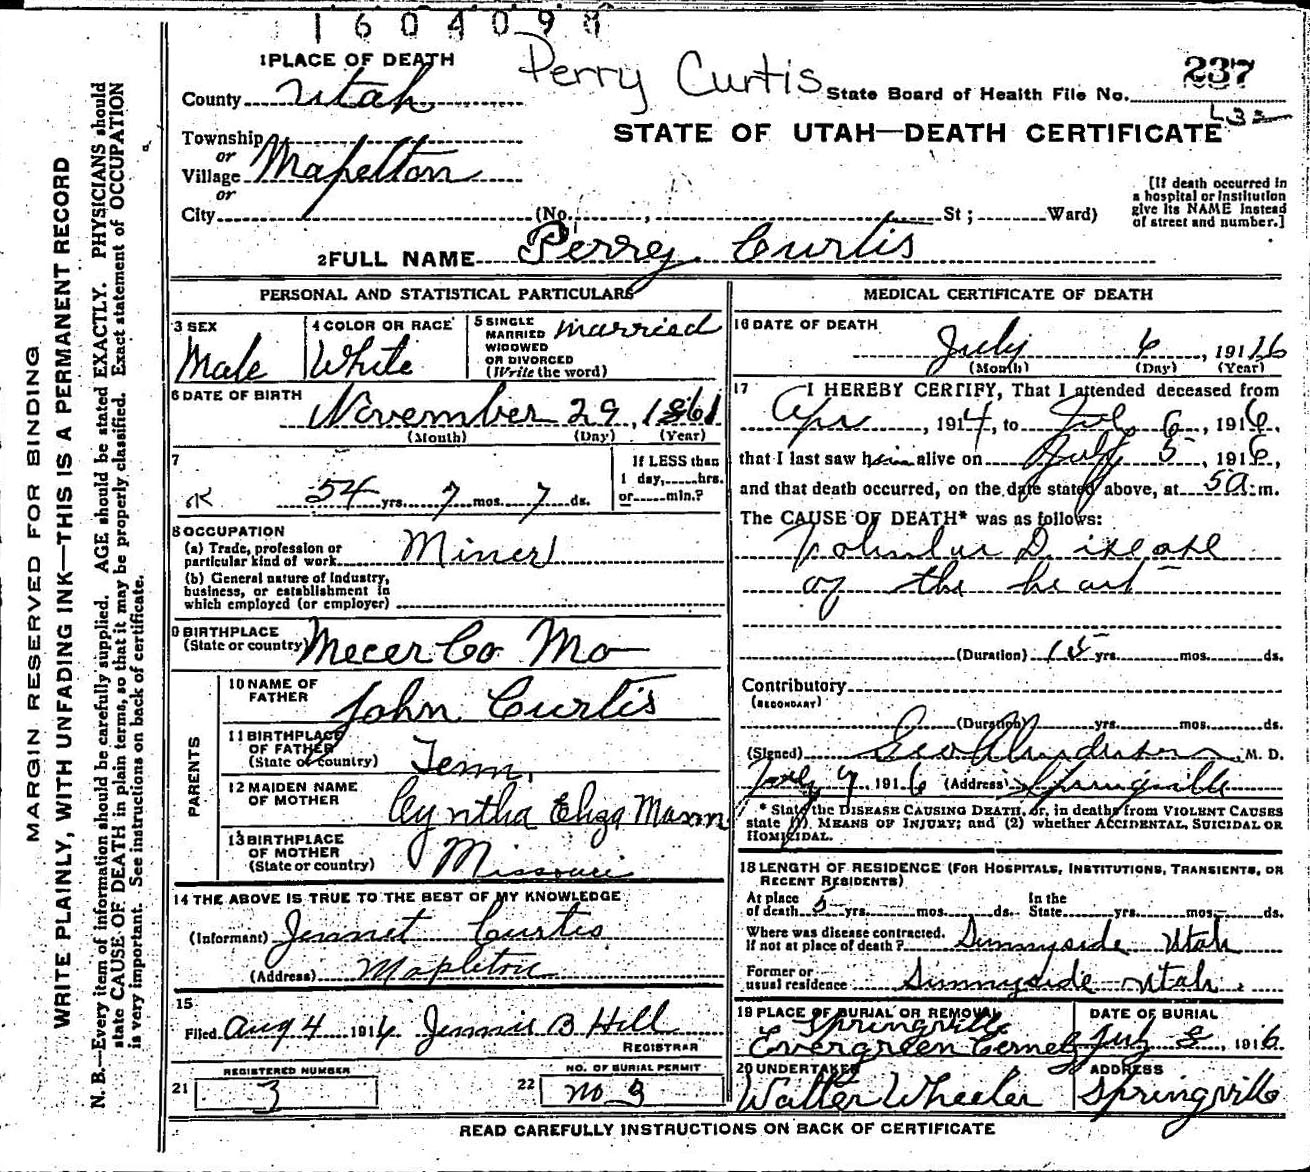 1604098
Perry Curtis
237
State Board of Health File No.
STATE OF UTAH—DEATH CERTIFICATE
1 PLACE OF DEATH
County Utah
Township
or
Village Mapelton
or
City (No. , St ; Ward)
[If death occurred in
a hospital or institution
give its NAME instead
of street and number.]
2 FULL NAME Perrey Curtis
PERSONAL AND STATISTICAL PARTICULARS
3 SEX
Male
4 COLOR OR RACE
White
5 SINGLE
MARRIED
WIDOWED
OR DIVORCED
(Write the word)
married
6 DATE OF BIRTH
November 29, 1861
(Month) (Day) (Year)
7
54 yrs. 7 mos. 7 ds.
If LESS than
1 day, hrs.
or min.?
8 OCCUPATION
(a) Trade, profession or
particular kind of work Miner
(b) General nature of industry,
business, or establishment in
which employed (or employer)
9 BIRTHPLACE
(State or country) Mecer Co Mo
PARENTS
10 NAME OF
FATHER
John Curtis
11 BIRTHPLACE
OF FATHER
(State or country)
Tenn.
12 MAIDEN NAME
OF MOTHER
Cyntha Eliza Mann
13 BIRTHPLACE
OF MOTHER
(State or country)
Missouri
14 THE ABOVE IS TRUE TO THE BEST OF MY KNOWLEDGE
(Informant) Jennet Curtis
(Address) Mapleton
15
Filed Aug 4 1916 Jennie B Hill
REGISTRAR
REGISTERED NUMBER
21 3
NO. OF BURIAL PERMIT
22 no 3
MEDICAL CERTIFICATE OF DEATH
16 DATE OF DEATH
July 6, 1916
(Month) (Day) (Year)
17 I HEREBY CERTIFY, That I attended deceased from
Apr , 1914, to July 6, 1916,
that I last saw him alive on July 5, 1916,
and that death occurred, on the date stated above, at 5 a. m.
The CAUSE OF DEATH* was as follows:
Valvular Disease
of the heart
(Duration) 15 yrs. mos. ds.
Contributory
(SECONDARY)
(Duration) yrs. mos. ds.
(Signed) Geo Anderson, M. D.
July 7 1916 (Address) Springville
* State the DISEASE CAUSING DEATH, or, in deaths from VIOLENT CAUSES
state (1) MEANS OF INJURY; and (2) whether ACCIDENTAL, SUICIDAL OR
HOMICIDAL.
18 LENGTH OF RESIDENCE (FOR HOSPITALS, INSTITUTIONS, TRANSIENTS, OR
RECENT RESIDENTS)
At place
of death 5 yrs. mos. ds. In the
State yrs. mos. ds.
Where was disease contracted.
if not at place of death? Sunnyside Utah
Former or
usual residence Sunnyside Utah.
19 PLACE OF BURIAL OR REMOVAL
Springville
Evergreen Cemet
DATE OF BURIAL
July 8, 1916.
20 UNDERTAKER
Walter Wheeler
ADDRESS
Springville
READ CAREFULLY INSTRUCTIONS ON BACK OF CERTIFICATE
MARGIN RESERVED FOR BINDING
WRITE PLAINLY, WITH UNFADING INK—THIS IS A PERMANENT RECORD
N. B.—Every item of information should be carefully supplied. AGE should be stated EXACTLY. PHYSICIANS should
state CAUSE OF DEATH in plain terms, so that it may be properly classified. Exact statement of OCCUPATION
is very important. See instructions on back of certificate.